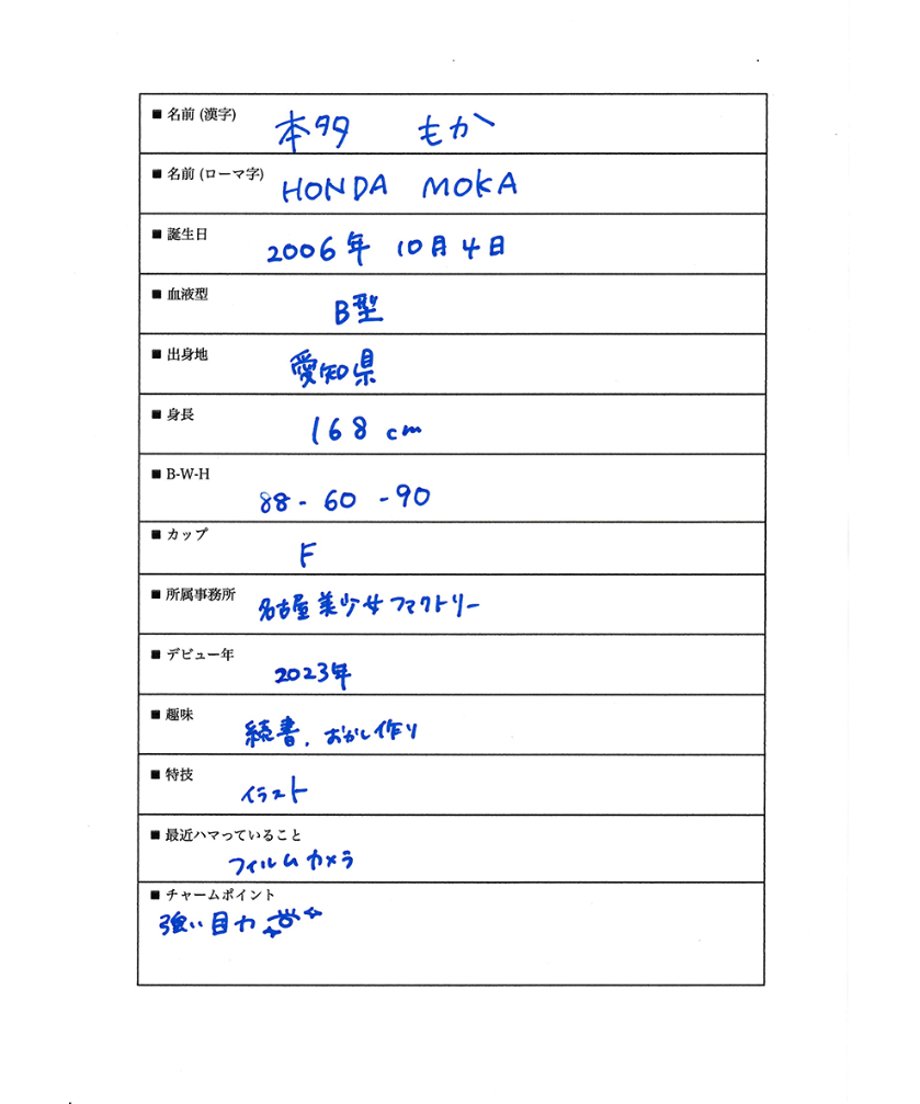 ■ 名前 (漢字)
本多 もか
■ 名前 (ローマ字)
HONDA MOKA
■ 誕生日
2006年 10月4日
■ 血液型
B型
■ 出身地
愛知県
■ 身長
168 cm
■ B-W-H
88 - 60 - 90
■ カップ
F
■ 所属事務所
名古屋美少女ファクトリー
■ デビュー年
2023年
■ 趣味
続書、おかし作り
■ 特技
イラスト
■ 最近ハマっていること
フィルムカメラ
■ チャームポイント
強い目力